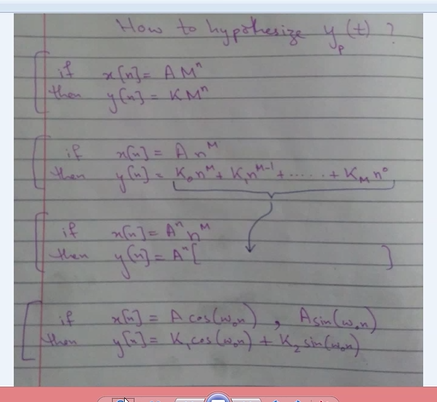 How to hypothesize yₚ(t) ?
if x[n] = A Mⁿ
then y[n] = K Mⁿ
if x[n] = A nᴹ
then y[n] = K₀nᴹ + K₁nᴹ⁻¹ + ...... + K_M n⁰
if x[n] = Aⁿ nᴹ
then y[n] = Aⁿ[ ]
if x[n] = A cos(ω₀n) , A sin(ω₀n)
then y[n] = K₁cos(ω₀n) + K₂ sin(ω₀n)